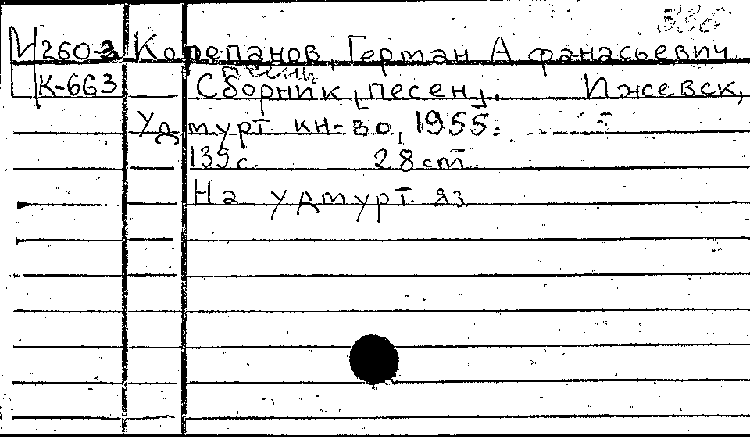 И260-3 Корепанов, Герман Афанасьевич
К-663 Сборник песен. Ижевск,
Удмурт кн-во, 1955.
139с 28см
На удмурт яз